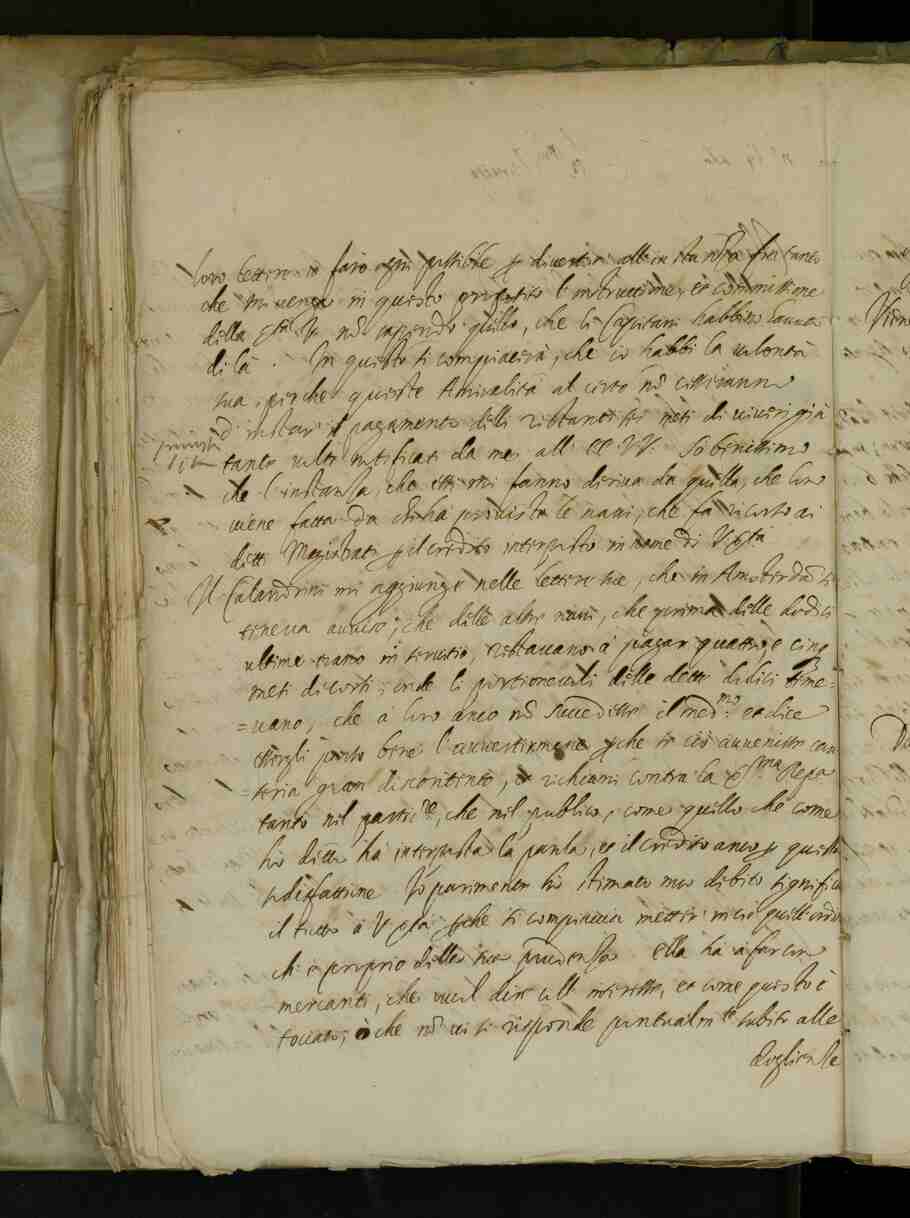 loro lettere io farò ogni possibile p divertir all'instanza fra tanto
che mi venga in questo proposito l'instruttione, et commissione
della Ser.tà V. nõ sapendo quello, che li Capitani habbino
di là. In questo si compiacerà, che io habbi la volontà
sua, perche queste Amiralità al certo nõ cesseranno
d'instar il pagamento delli restanti sei mesi di viveri già
tante volte notificati da me all' EE VV. So benissimo
che l'instanza, che essi mi fanno deriva da quella, che loro
viene fatta da chi ha provista le navi, che fa ricorso ai
detti Magistrati p il credito interposto in nome di V Sertà
Il Calandrini mi aggiunge nelle lettere sue, che in Amsterdã si
teneva aviso, che delle altre navi, che prima delle dodici
ultime erano in servitio, restavano à pagar quattro, e cinq
mesi di corsi; onde li portionevoli delle dette dodici teme=
=vano, che à loro anco nõ succedesse il med.mo: et dice
essergli parso bene l'avvertirmene pche se ciò avvenisse cau
=seria gran discontento, et richiami contra la Ser.ma Repca
tanto nel partic.re, che nel publico, come quello che come
ho detto ha interposta la parola, et il credito anco p questa
sodisfattione. Io parimente ho stimato mio debito significar
il tutto à V Sertà pche si compiaccia metter in ciò quell' ordine
ch' è proprio della sua prudenza. Ella ha à far con
mercanti, che vuol dire coll' interesse, et come questo è
toccato; ò che nõ vi si risponde puntualm.te subito alle
doglienze